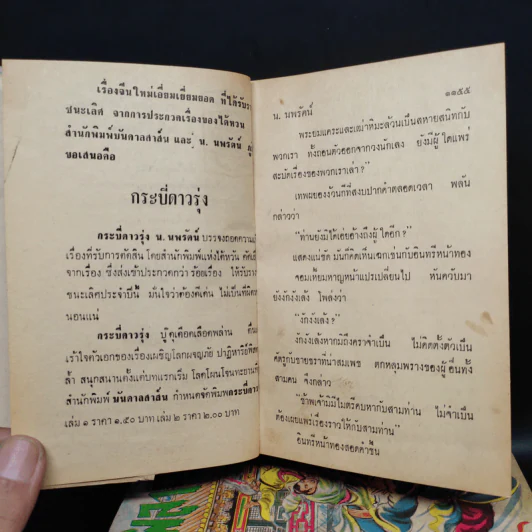 เรื่องจีนใหม่เอี่ยมเยี่ยมยอด ที่ได้รับรา
ชนะเลิศ จากการประกวดเรื่องของไต้หวัน
สำนักพิมพ์บันดาลสาส์น และ น. นพรัตน์ ภู
ขอเสนอคือ
กระบี่ดาวรุ่ง
กระบี่ดาวรุ่ง น. นพรัตน์ บรรจงถอดความ
เรื่องที่รับการคัดสิน โดยสำนักพิมพ์แห่งไต้หวัน คัดเลื
จากเรื่อง ซึ่งส่งเข้าประกวดกว่า ร้อยเรื่อง ให้รับรา
ชนะเลิศประจำปีนี้ มั่นใจว่าต้องดีเด่น ไม่เป็นที่ผิดห
นอนแน่
กระบี่ดาวรุ่ง บู๊ดุเดือดเลือดพล่าน ตื่น
เร้าใจด้วยเรื่องเผชิญโลกผจญภัย ปาฏิหาริย์
ล้ำ สนุกสนานตั้งแต่บทแรกเริ่ม โลดโผนโจนทะยาน
สำนักพิมพ์ บันดาลสาส์น กำหนดจัดพิมพ์กระบี่ดาว
เล่ม ๑ ราคา ๑.๕๐ บาท เล่ม ๒ ราคา ๒.๐๐ บาท
น. นพรัตน์
๑๑๕๕
พระยมแคระและเฒ่าหิมะล้วนเป็นสหายสนิทกับ
พวกเรา ทั้งถอนตัวออกจากวงนักเลง ยังมีผู้ใดแพร่
สะบัดเรื่องของพวกเราเล่า?"
เทพผยองวันก็ที่สงบปากคำตลอดเวลา พลัน
กล่าวว่า
"ท่านยังมิได้เอ่ยอ้างถึงผู้ใดอีก?"
แสดงแน่ชัด มันก็คิดเห็นเฉกเช่นกับอินทรีหน้าทอง
จอมเหี้ยมหาญหน้าแปรเปลี่ยนไป หันควับมา
ยังงักงังเล้ง โพล่งว่า
"งักงังเล้ง?"
งักงังเล้งหากมิถึงคราจำเป็น ไม่คิดตั้งตัวเป็น
ศัตรูกับชายชราที่น่าสมเพช ตกหลุมพรางของผู้อื่นทั้ง
สามคน จึงกล่าว
"ข้าพเจ้ามิมีไมตรีคบหากับสามท่าน ไม่จำเป็น
ต้องเผยแพร่เรื่องราวให้กับสามท่าน"
อินทรีหน้าทองสอดคำขึ้น